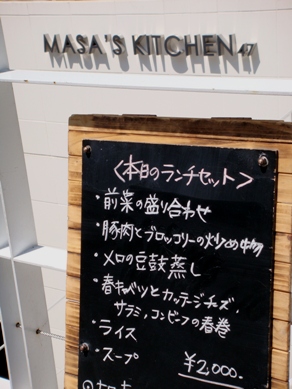 MASA'S KITCHEN 47
<本日のランチセット>
・前菜の盛り合わせ
・豚肉とブロッコリーの炒め物
・メロの豆鼓蒸し
・春キャベツとカッテージチーズ、
サラミ、コンビーフの春巻
・ライス
・スープ
¥2,000-